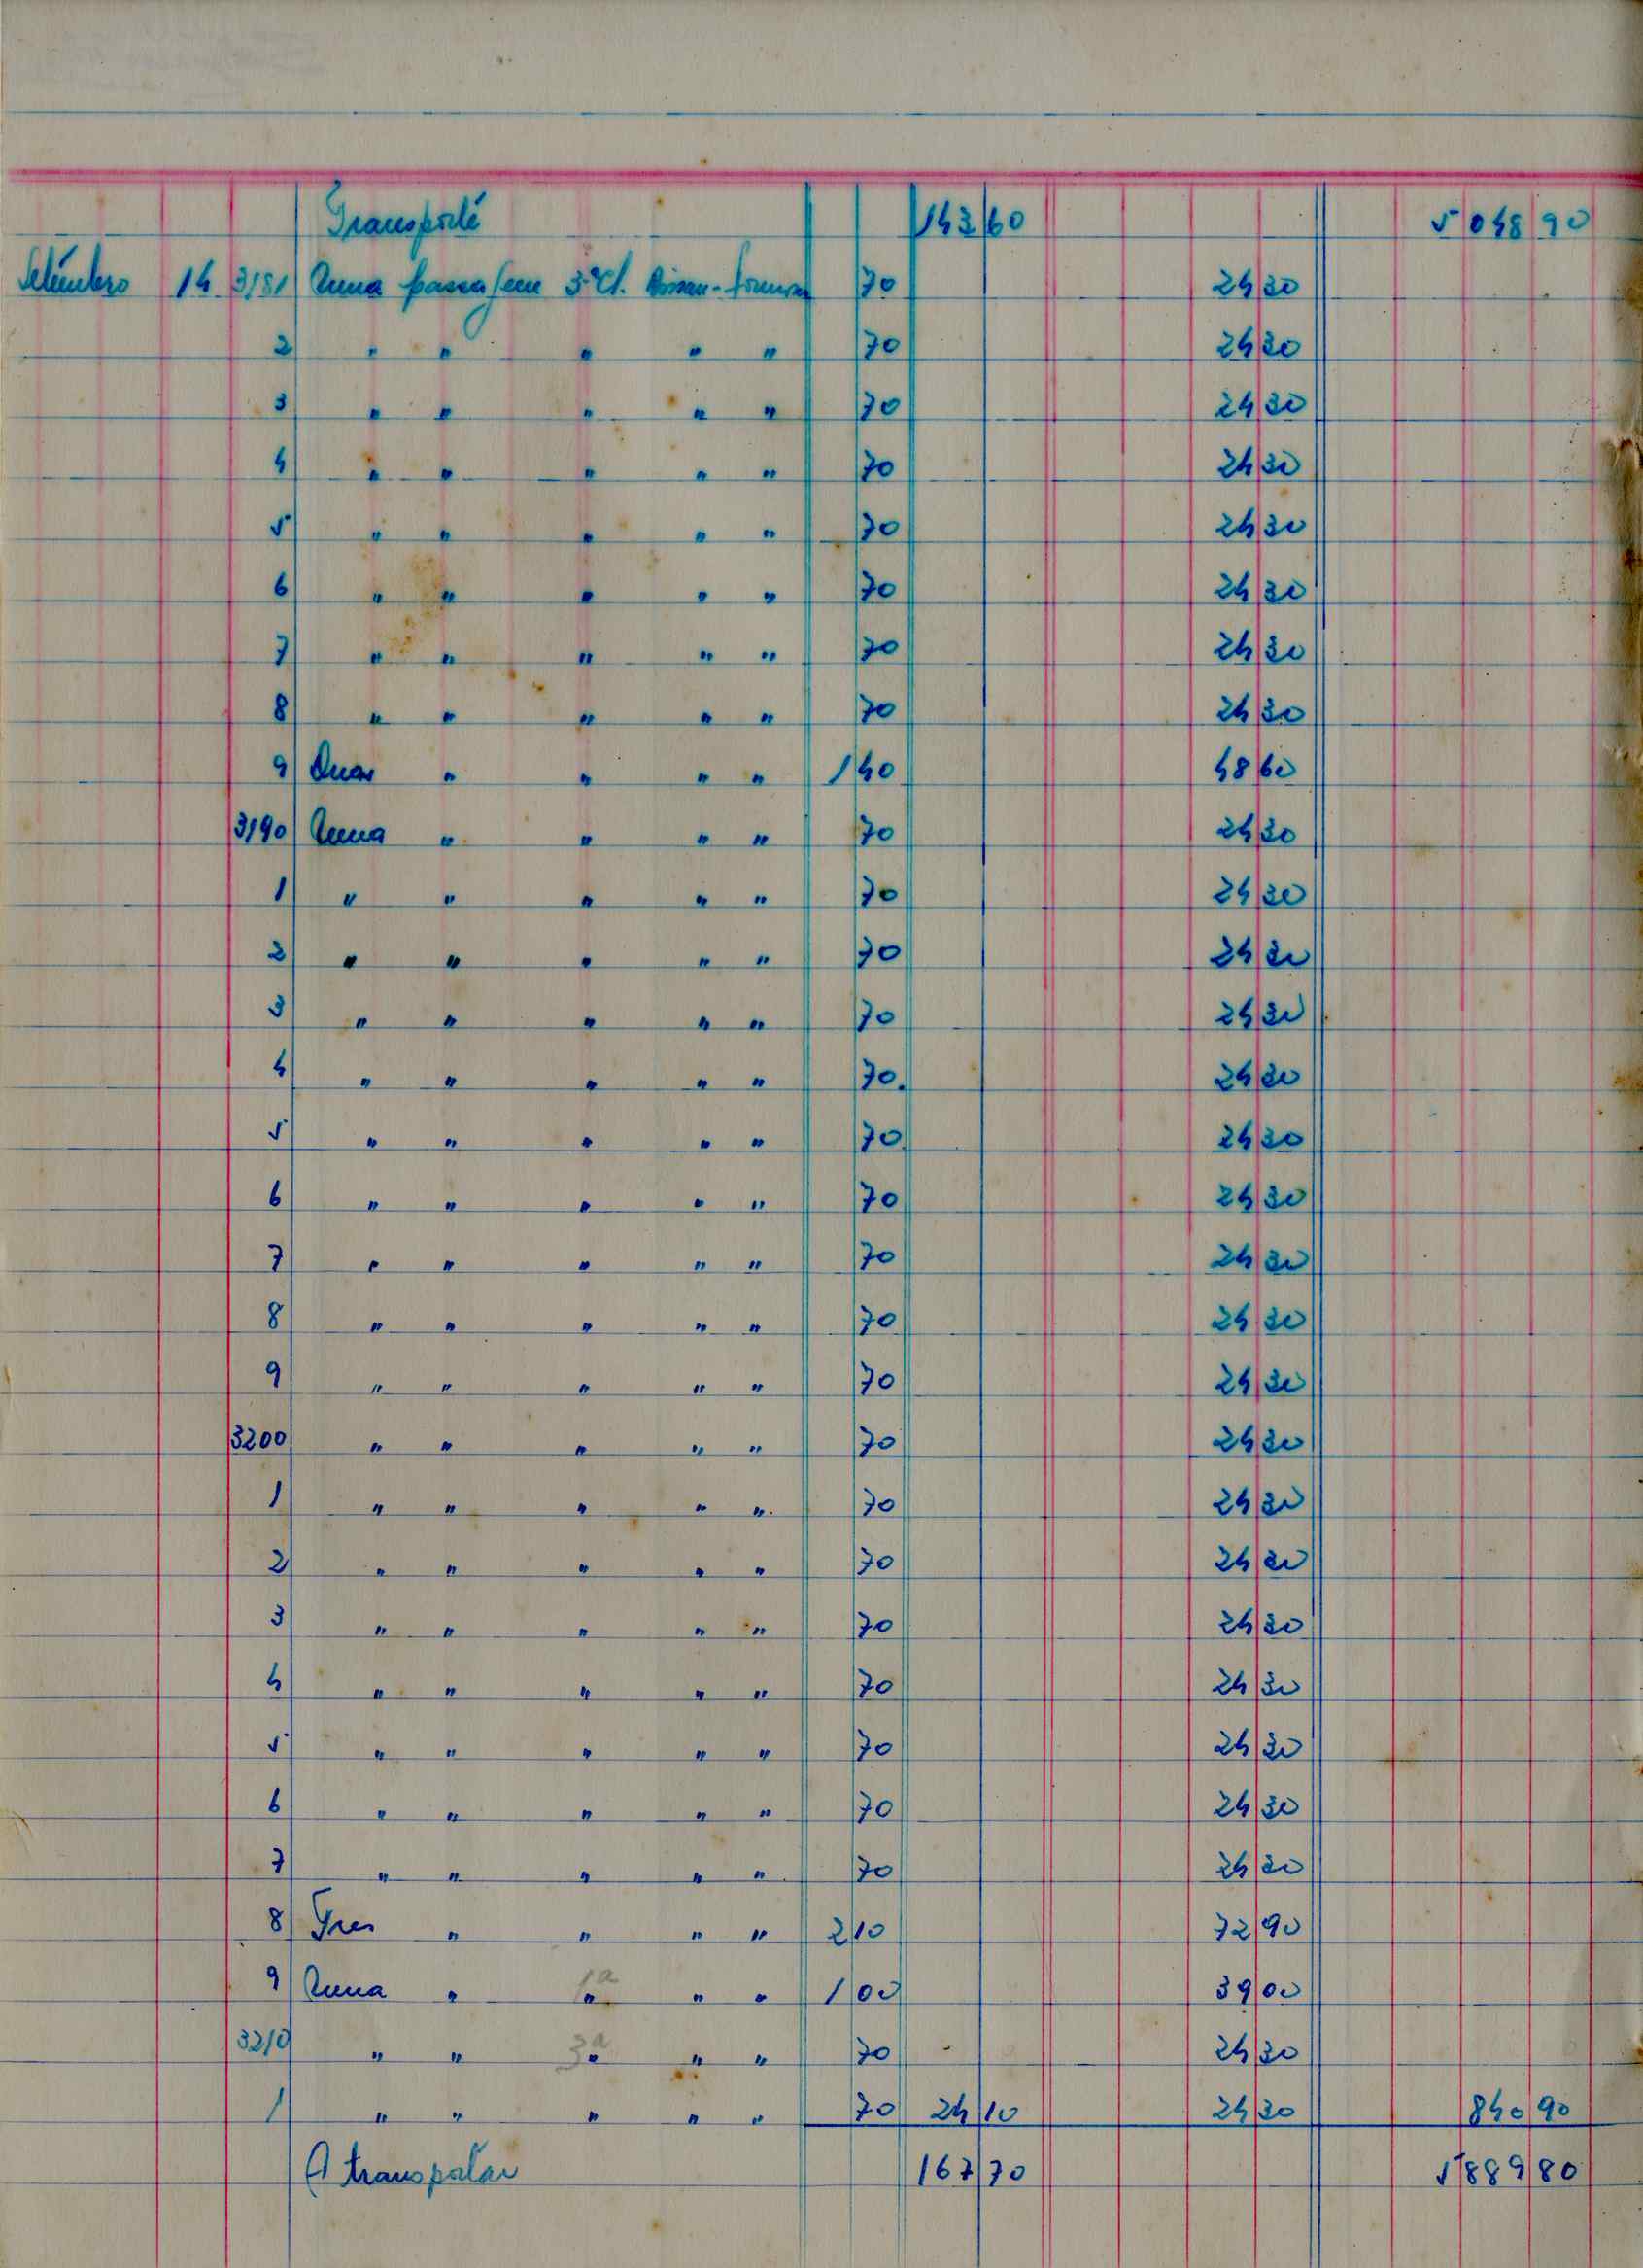 Transporte 143 60 5 048 90
Setembro 14 3181 Uma passagem 3ª Cl. Bissau- 70 24 30
2 " " " " " 70 24 30
3 " " " " " 70 24 30
4 " " " " " 70 24 30
5 " " " " " 70 24 30
6 " " " " " 70 24 30
7 " " " " " 70 24 30
8 " " " " " 70 24 30
9 Duas " " " " 1 40 48 60
3190 Uma " " " " 70 24 30
1 " " " " " 70 24 30
2 " " " " " 70 24 30
3 " " " " " 70 24 30
4 " " " " " 70. 24 30
5 " " " " " 70 24 30
6 " " " " " 70 24 30
7 " " " " " 70 24 30
8 " " " " " 70 24 30
9 " " " " " 70 24 30
3200 " " " " " 70 24 30
1 " " " " " 70 24 30
2 " " " " " 70 24 30
3 " " " " " 70 24 30
4 " " " " " 70 24 30
5 " " " " " 70 24 30
6 " " " " " 70 24 30
7 " " " " " 70 24 30
8 Tres " " " " 2 10 72 90
9 Uma " 1ª " " " 1 00 39 00
3210 " " 3ª " " " 70 24 30
1 " " " " " 70 24 10 24 30 840 90
A transportar 167 70 5 889 80